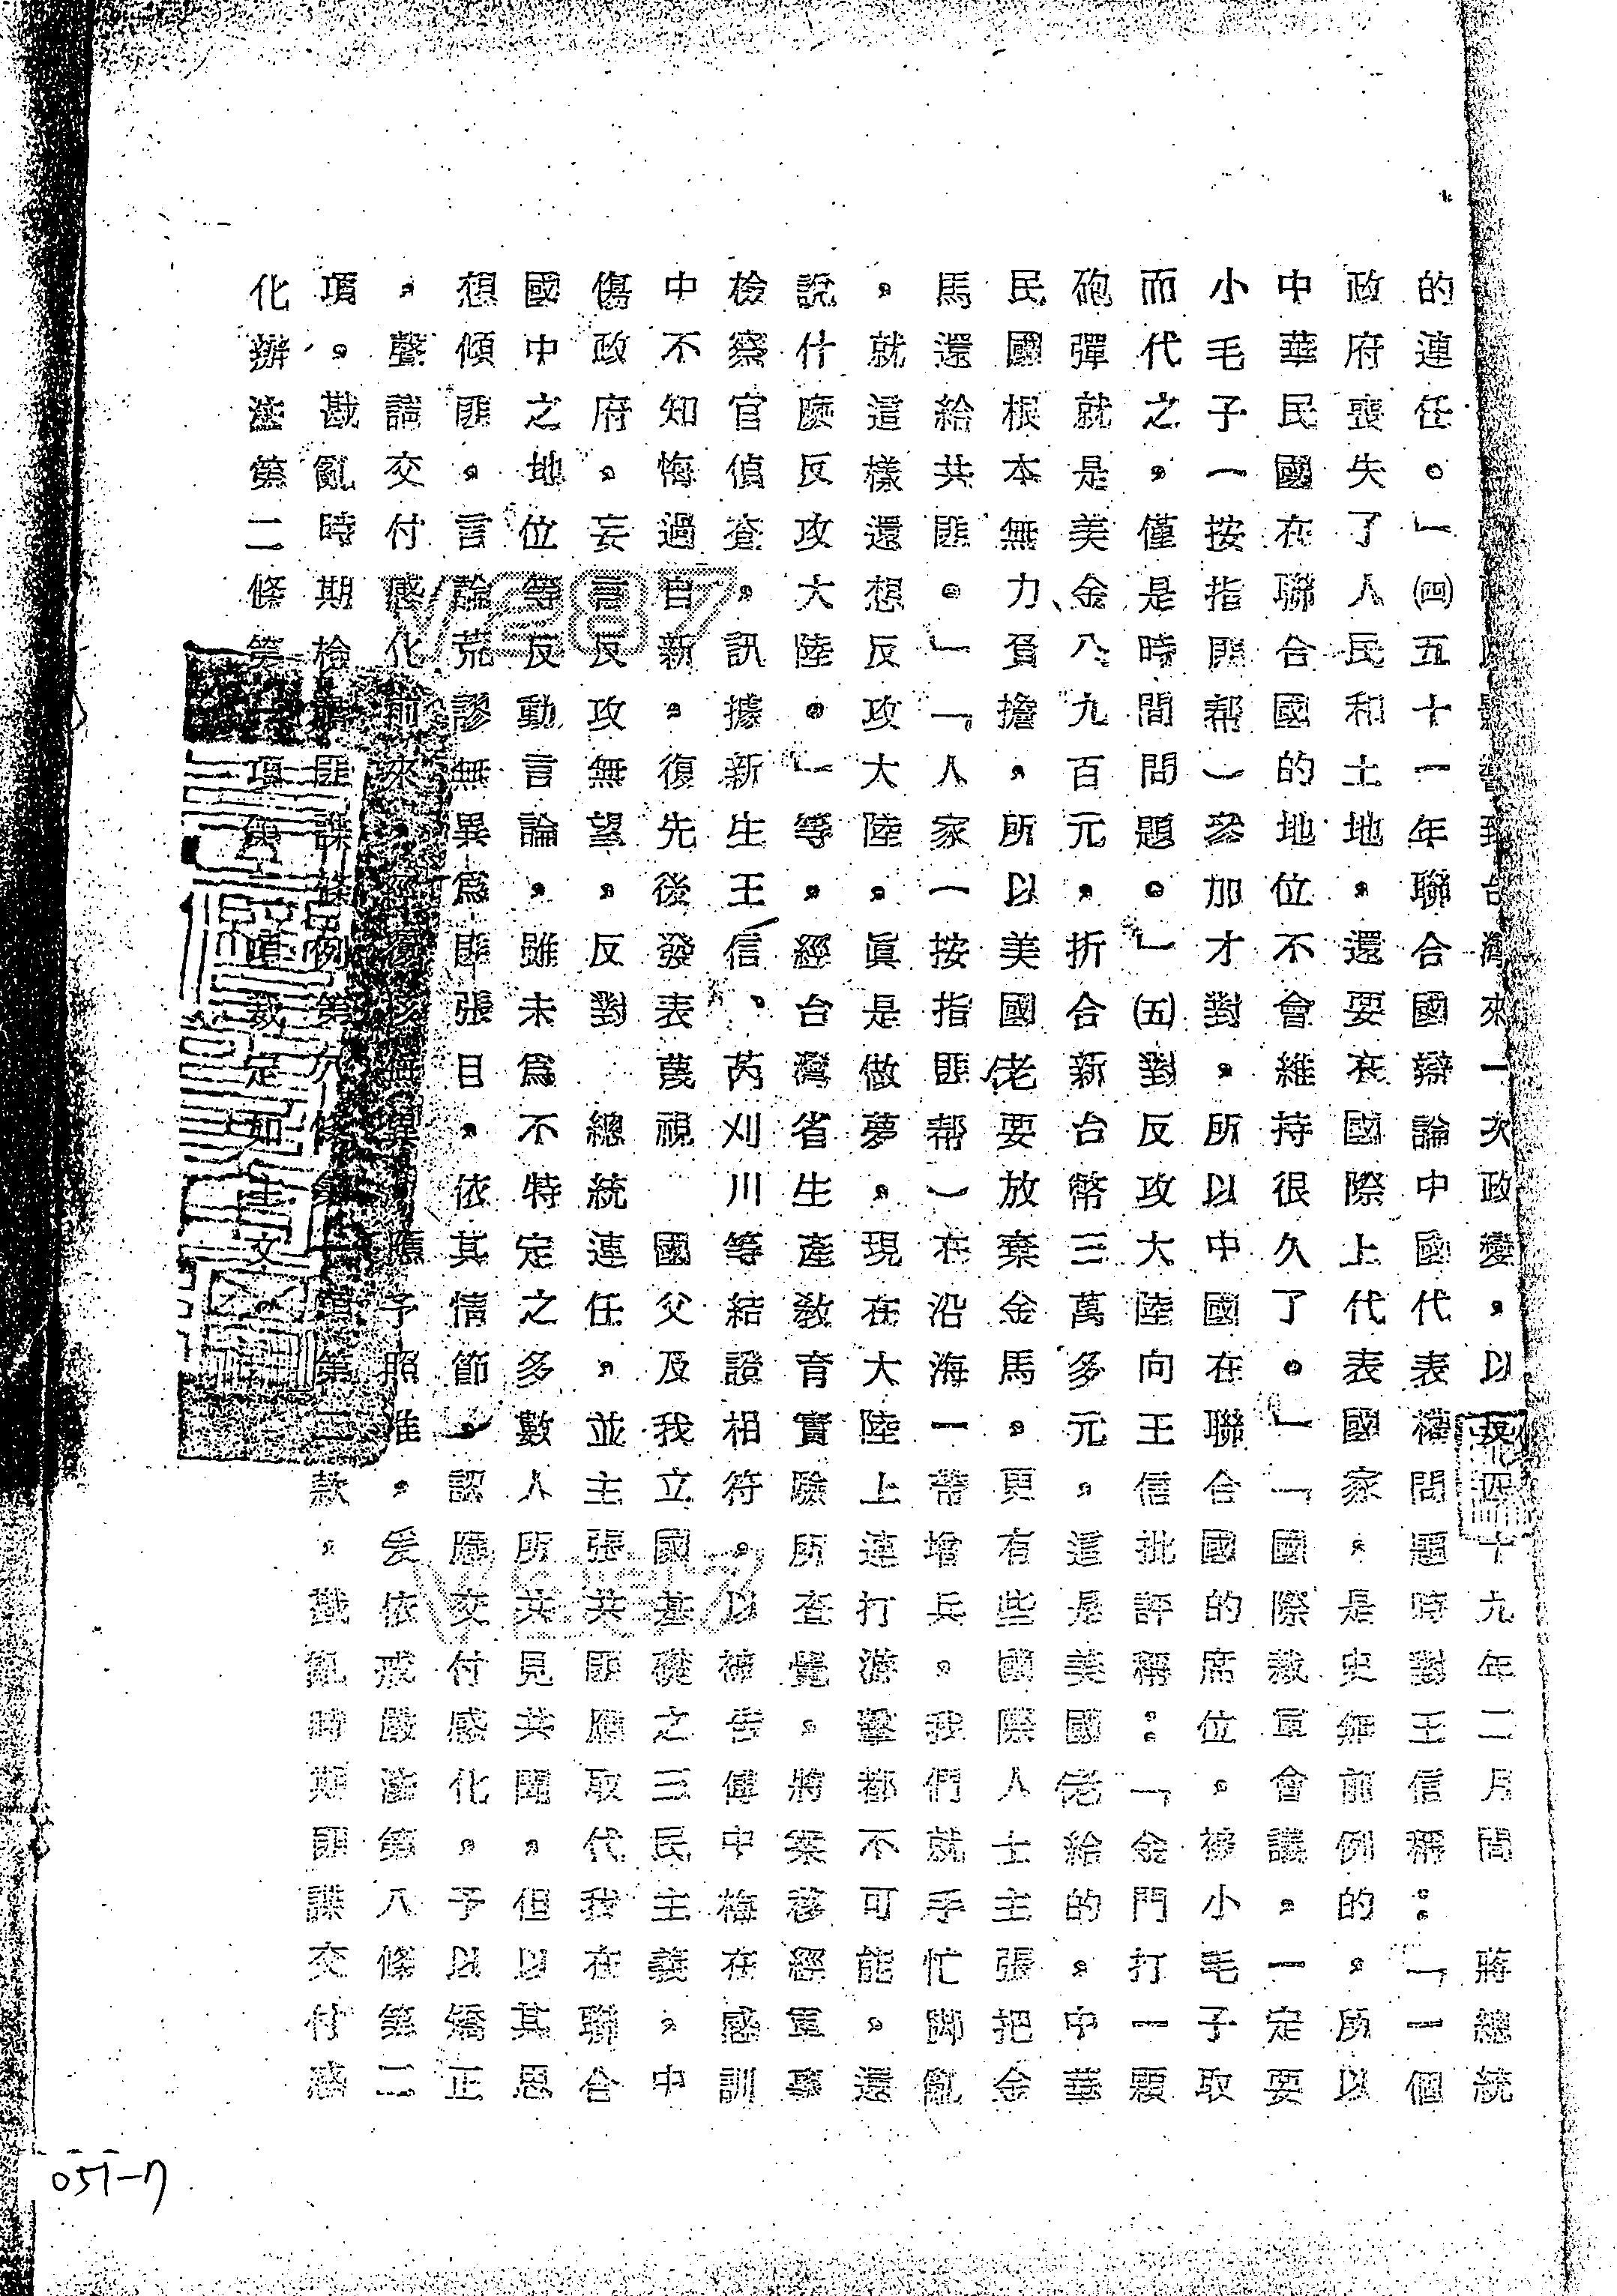 影響到台灣來一次政變，以及四十九年二月間　蔣總統
的連任。」㈣五十一年聯合國辯論中國代表權問題時對王信稱：「一個
政府喪失了人民和土地，還要在國際上代表國家，是史無前例的，所以
中華民國在聯合國的地位不會維持很久了。」「國際裁軍會議，一定要
小毛子（按指匪帮）參加才對，所以中國在聯合國的席位，被小毛子取
而代之，僅是時間問題。」㈤對反攻大陸向王信批評稱：「金門打一顆
砲彈就是美金八、九百元，折合新台幣三萬多元，這是美國佬給的。中華
民國根本無力負擔，所以美國佬要放棄金馬。更有些國際人士主張把金
馬還給共匪。」「人家（按指匪帮）在沿海一帶增兵，我們就手忙脚亂
，就這樣還想反攻大陸，真是做夢。現在大陸上連打游擊都不可能，還
說什麼反攻大陸。」等，經台灣省生產教育實驗所查覺，將案移經軍事
檢察官偵查，訊據新生王信、芮刈川等結證相符，以被告傅中梅在感訓
中不知悔過自新，復先後發表蔑視　國父及我立國基礎之三民主義，中
傷政府，妄言反攻無望，反對總統連任，並主張共匪應取代我在聯合
國中之地位等反動言論，雖未為不特定之多數人所共見共聞，但以其思
想傾匪，言論荒謬無異為匪張目，依其情節，認應交付感化，予以矯正
，聲請交付感化前來，經核無異，應予照准，爰依戒嚴法第八條第二
項，戡亂時期檢肅匪諜條例第八條第一項第二款，戡亂時期匪諜交付感
化辦法第二條第一項裁定如主文
051-7